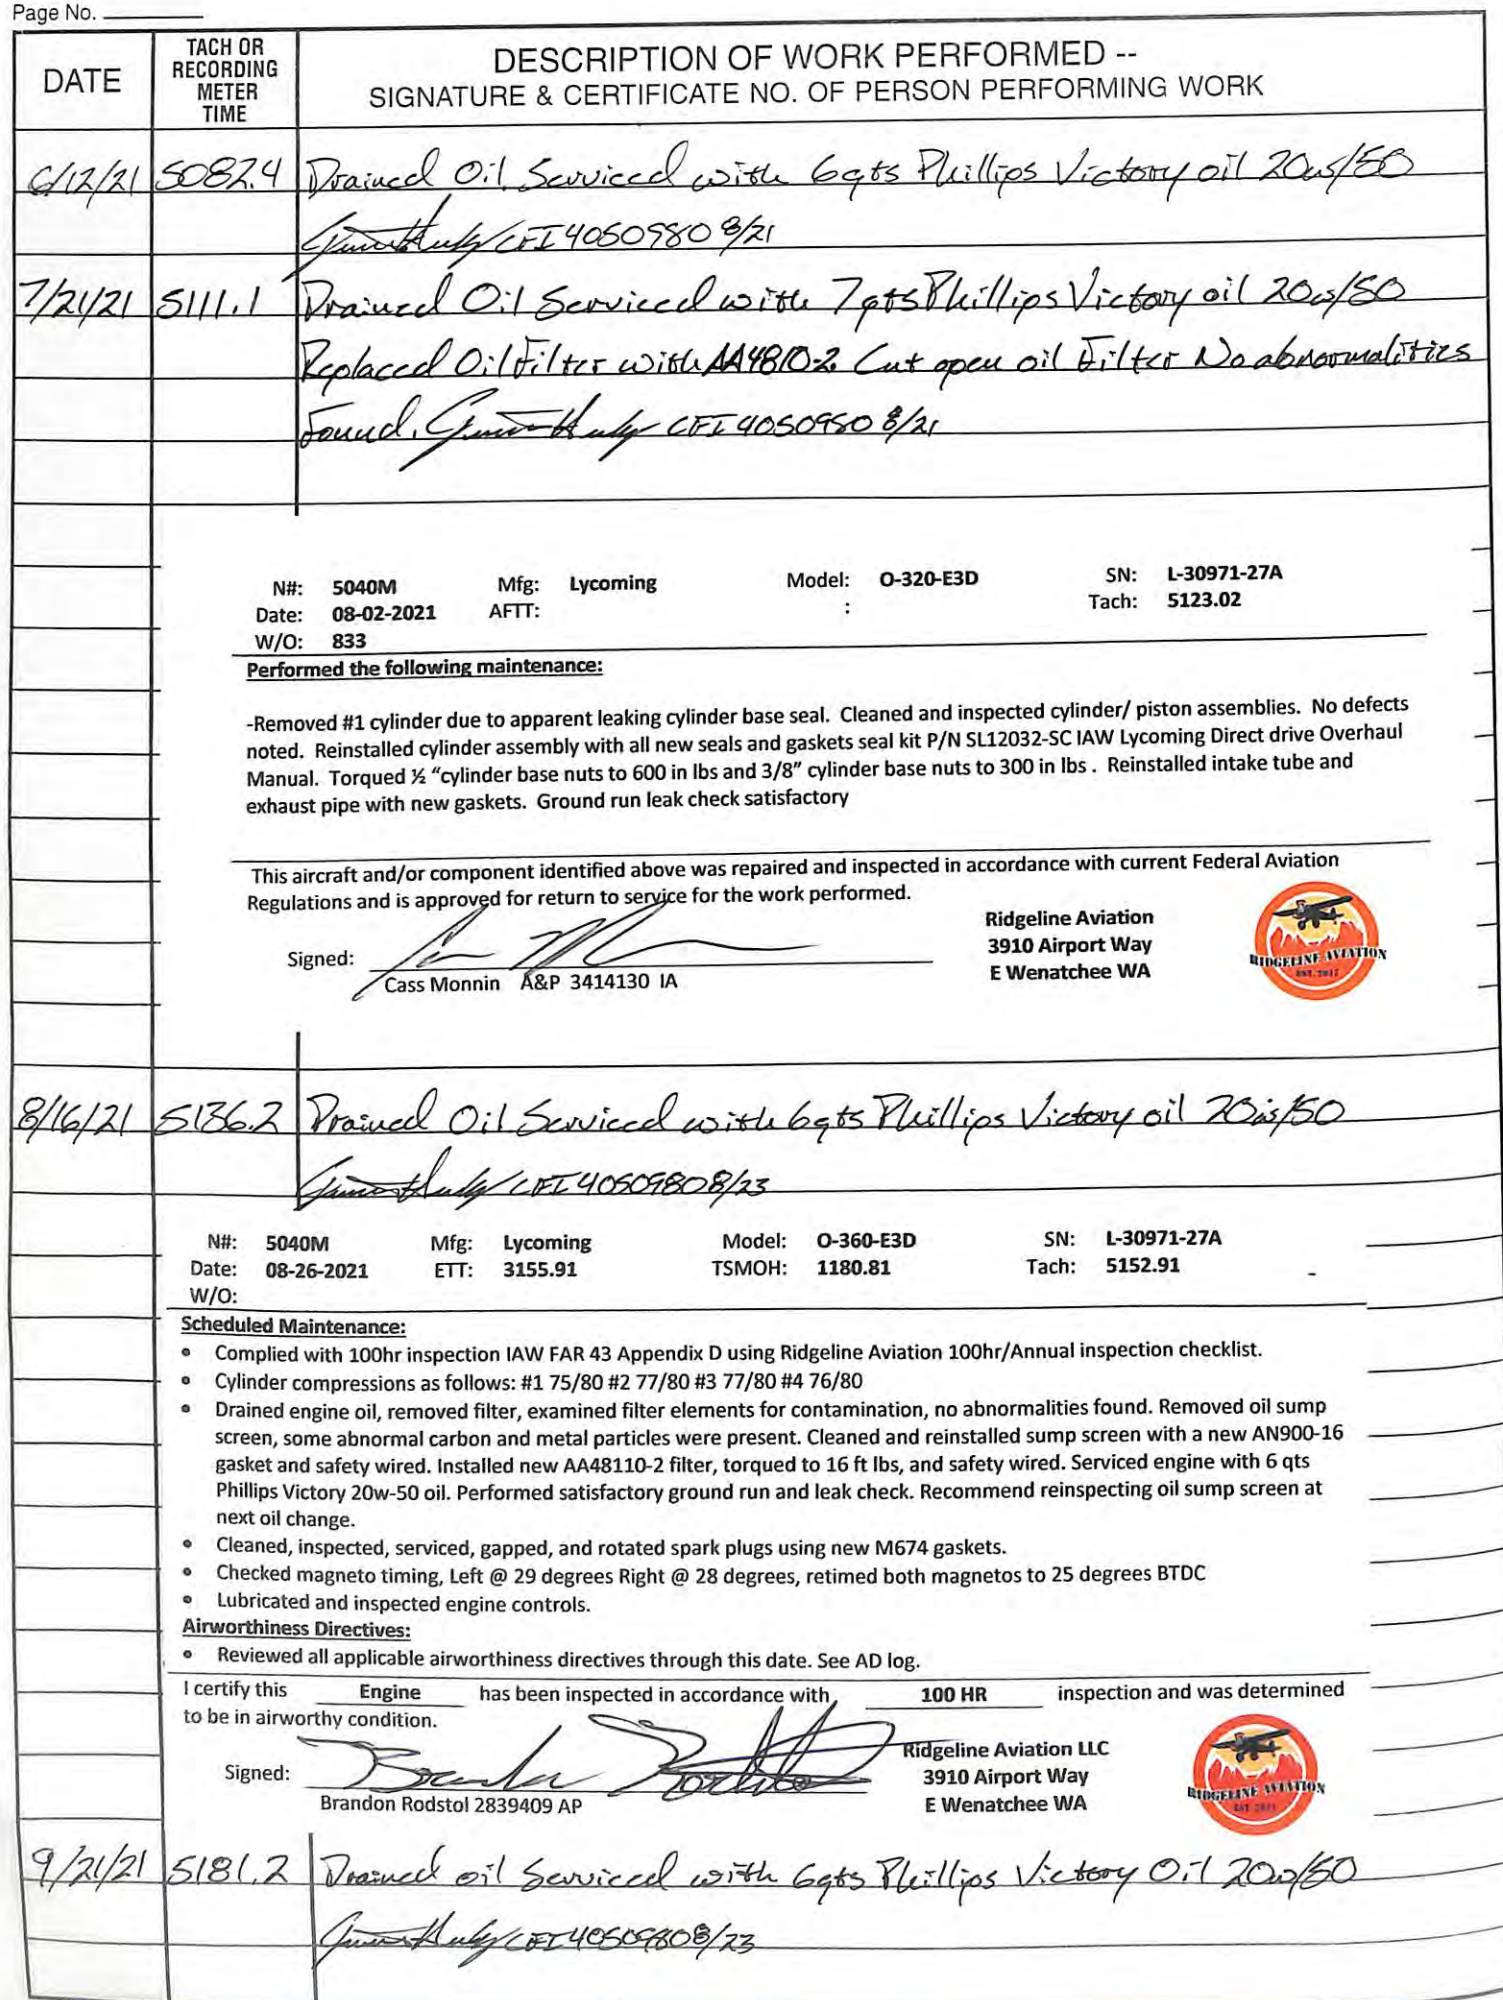 Page No.
DATE
TACH OR
RECORDING
METER
TIME
DESCRIPTION OF WORK PERFORMED --
SIGNATURE & CERTIFICATE NO. OF PERSON PERFORMING WORK
6/12/21 5082.4 Drained Oil. Serviced with 6qts Phillips Victory oil 20w/50
CFI 4050980 8/21
7/21/21 5111.1 Drained Oil Serviced with 7qts Phillips Victory oil 20w/50
Replaced Oil Filter with AA4810-2. Cut open oil Filter No abnormalities
Found. CFI 4050980 8/21
N#: 5040M Mfg: Lycoming Model: O-320-E3D SN: L-30971-27A
Date: 08-02-2021 AFTT: : Tach: 5123.02
W/O: 833
Performed the following maintenance:
-Removed #1 cylinder due to apparent leaking cylinder base seal. Cleaned and inspected cylinder/ piston assemblies. No defects
noted. Reinstalled cylinder assembly with all new seals and gaskets seal kit P/N SL12032-SC IAW Lycoming Direct drive Overhaul
Manual. Torqued ½ “cylinder base nuts to 600 in lbs and 3/8” cylinder base nuts to 300 in lbs . Reinstalled intake tube and
exhaust pipe with new gaskets. Ground run leak check satisfactory
This aircraft and/or component identified above was repaired and inspected in accordance with current Federal Aviation
Regulations and is approved for return to service for the work performed.
Ridgeline Aviation
3910 Airport Way
E Wenatchee WA
RIDGELINE AVIATION
EST. 2017
Signed:
Cass Monnin A&P 3414130 IA
8/16/21 5136.2 Drained Oil Serviced with 6qts Phillips Victory oil 20w/50
CFI 4050980 8/23
N#: 5040M Mfg: Lycoming Model: O-360-E3D SN: L-30971-27A
Date: 08-26-2021 ETT: 3155.91 TSMOH: 1180.81 Tach: 5152.91
W/O:
Scheduled Maintenance:
• Complied with 100hr inspection IAW FAR 43 Appendix D using Ridgeline Aviation 100hr/Annual inspection checklist.
• Cylinder compressions as follows: #1 75/80 #2 77/80 #3 77/80 #4 76/80
• Drained engine oil, removed filter, examined filter elements for contamination, no abnormalities found. Removed oil sump
screen, some abnormal carbon and metal particles were present. Cleaned and reinstalled sump screen with a new AN900-16
gasket and safety wired. Installed new AA48110-2 filter, torqued to 16 ft lbs, and safety wired. Serviced engine with 6 qts
Phillips Victory 20w-50 oil. Performed satisfactory ground run and leak check. Recommend reinspecting oil sump screen at
next oil change.
• Cleaned, inspected, serviced, gapped, and rotated spark plugs using new M674 gaskets.
• Checked magneto timing, Left @ 29 degrees Right @ 28 degrees, retimed both magnetos to 25 degrees BTDC
• Lubricated and inspected engine controls.
Airworthiness Directives:
• Reviewed all applicable airworthiness directives through this date. See AD log.
I certify this Engine has been inspected in accordance with 100 HR inspection and was determined
to be in airworthy condition.
Ridgeline Aviation LLC
3910 Airport Way
E Wenatchee WA
RIDGELINE AVIATION
Signed:
Brandon Rodstol 2839409 AP
9/21/21 5181.2 Drained oil Serviced with 6qts Phillips Victory Oil 20w/50
CFI 4050980 8/23